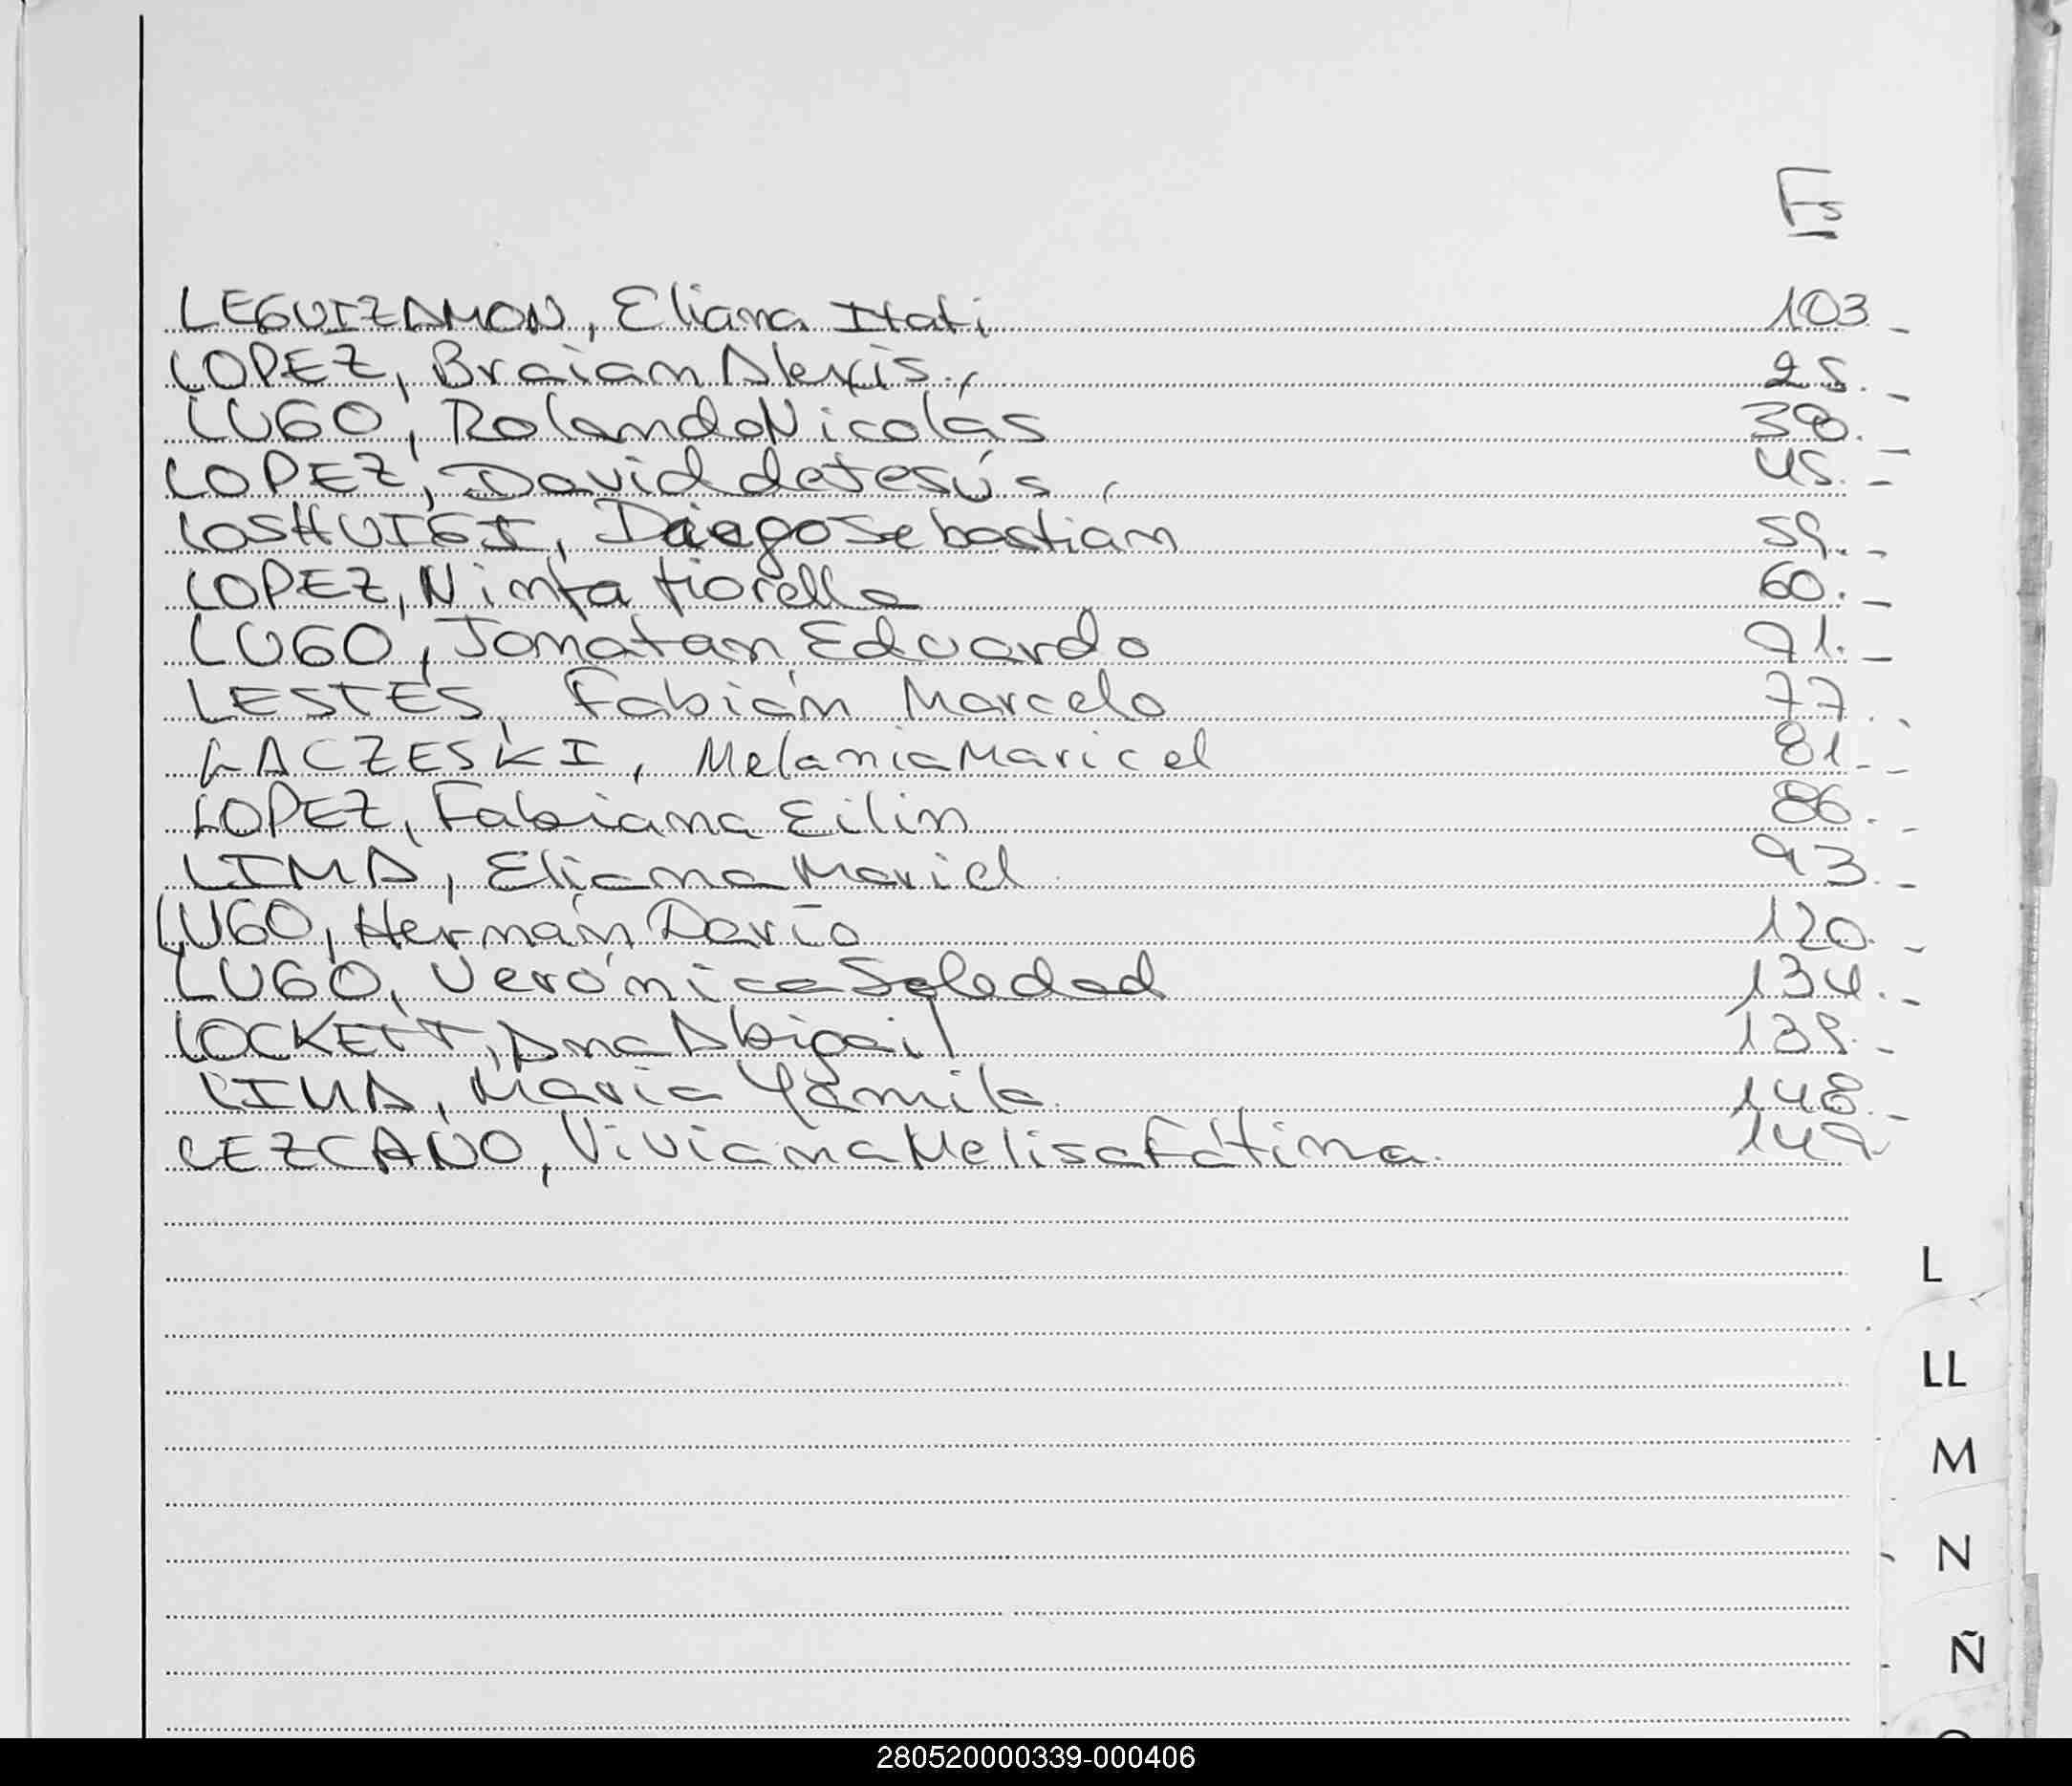 Fs
LEGUIZAMON, Eliana Itati 103 -
LOPEZ, Braian Alexis, 25. -
LUGO, Rolando Nicolás 38. -
LOPEZ, David de Jesús, 45. -
LOSHUIGI, Diego Sebastián 59. -
LOPEZ, Ninfa fiorella 60. -
LUGO, Jonatan Eduardo 71. -
LESTES, Fabián Marcelo 77.
LACZESKI, Melania Maricel 81. -
LOPEZ, Fabiana Eilin 86. -
LIMA, Eliana Mariel 93. -
LUGO, Hernán Darío 120. -
LUGO, Verónica Soledad 134. -
LOCKETT, Ana Abigail -
LIMA, Maria Yamila 148. -
LEZCANO, Viviana Melisa Fátima. 149
L
LL
M
N
Ñ
280520000339-000406